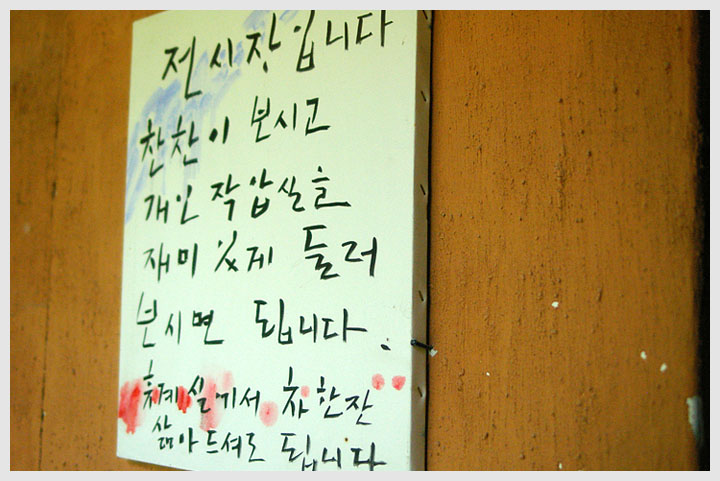 전시장입니다
찬찬이 보시고
개인 작압실을
재미있게 둘러
보시면 됩니다.
휴계실에서 차 한잔
삶아드셔도 됩니다